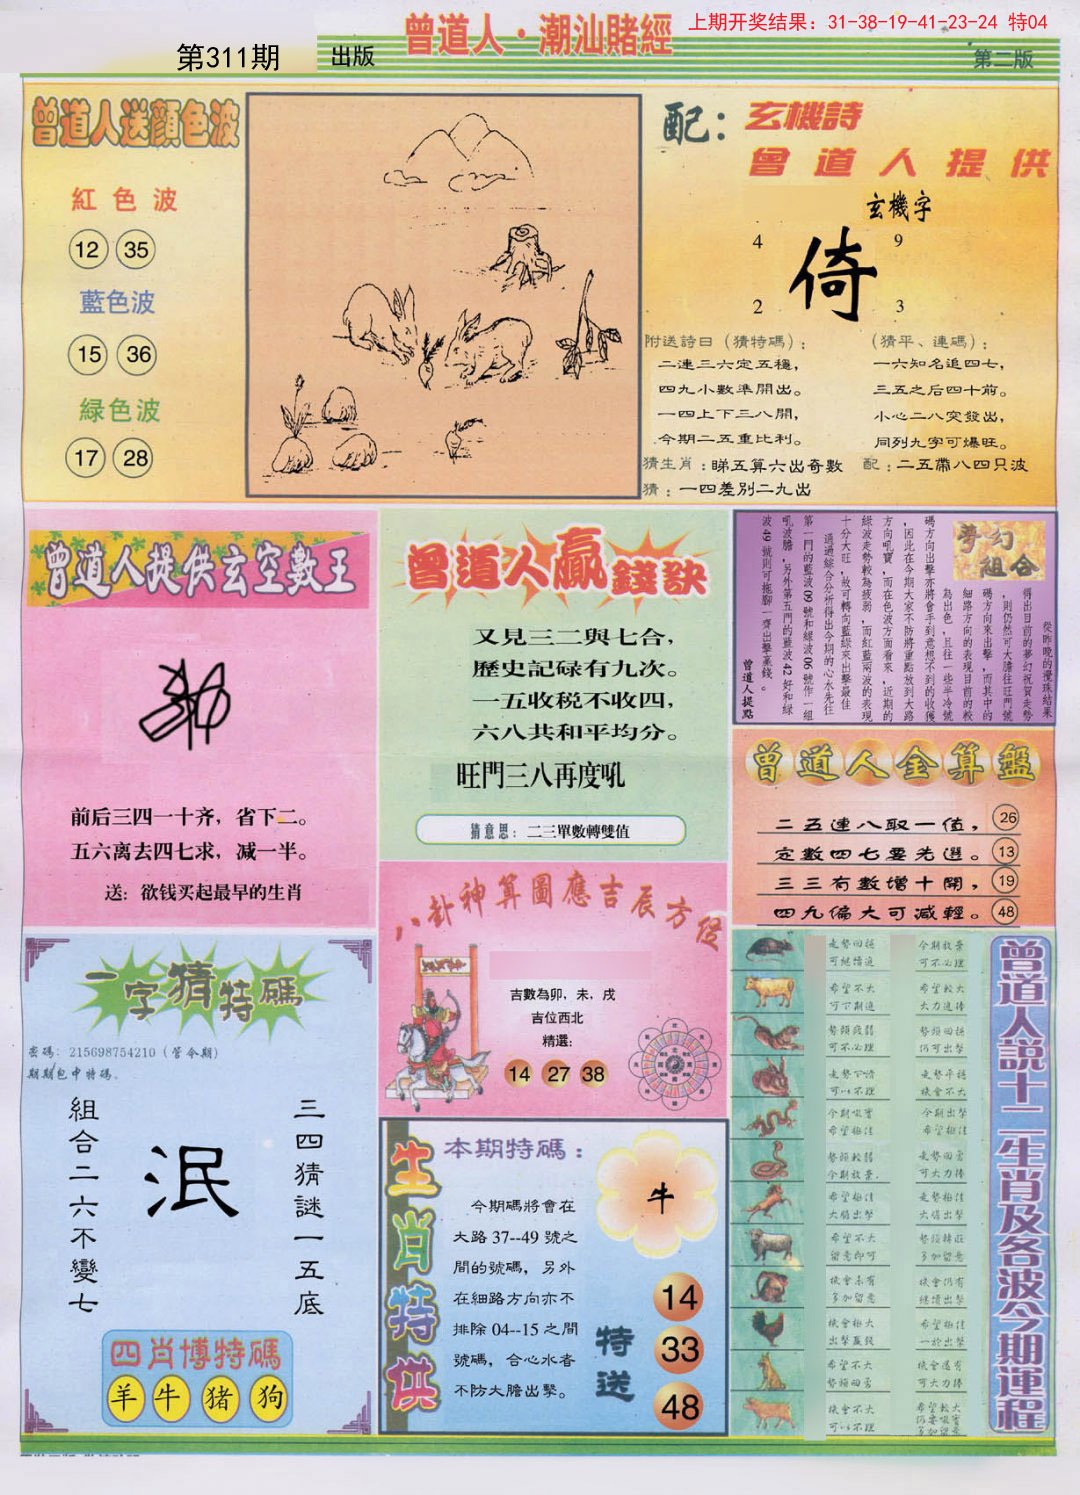 曾道人·潮汕賭經
上期开奖结果：31-38-19-41-23-24 特04
第311期
出版
第二版
曾道人送顏色波
紅色波
12 35
藍色波
15 36
緑色波
17 28
配：玄機詩
曾道人提供
玄機字
4 9
倚
2 3
附送詩日（猜特碼）：
二連三六定五穩，
四九小數準開出。
一四上下三八開，
今期二五重比利。
（猜平、連碼）：
一六知名追四七，
三五之后四十前。
小心二八突發出，
同列九字可爆旺。
猜生肖：睇五算六出奇數
配：二五帶八四只波
猜：一四差別二九出
曾道人提供玄空數王
前后三四一十齐，省下二。
五六离去四七求，减一半。
送：欲钱买起最早的生肖
曾道人贏錢訣
又見三二與七合，
歷史記碌有九次。
一五收税不收四，
六八共和平均分。
旺門三八再度吼
猜意思：二三單數轉雙值
夢幻組合
從昨晚的攪珠結果
得出目前的夢幻祝賀走勢
，則仍然可大膽往旺門號
碼方向來出擊，而其中的
細路方向的表現目前的較
為出色，且往一些半冷號
碼方向出擊亦將會手到意想不到的收獲
，因此在今期大家不防將重點放到大路
方向吼寶，而在色波方面看來，近期的
綠波走勢較為疲弱，而紅藍兩波的表現
十分大旺，故可轉向藍綠來出擊最佳
通過綜合分析得出今期的心水先往
第一門的藍波09號和綠波06號作一組
吼波膽，另外第五門的藍波42好和綠
波49號則可拖腳一齊出擊贏錢。
曾道人提點
曾道人金算盤
二五連八取一值， 26
定數四七要先選。 13
三三有數增十開， 19
四九偏大可減輕。 48
八卦神算圖應吉辰方位
吉數為卯，未，戌
吉位西北
精選：
14 27 38
一字猜特碼
密碼：215698754210（管今期）
期期包中特碼。
組合二六不變七
泯
三四猜謎一五底
四肖博特碼
羊 牛 猪 狗
生肖特供
本期特碼：
今期碼將會在
大路 37--49 號之
間的號碼，另外
在細路方向亦不
排除 04--15 之間
號碼，合心水者
不防大膽出擊。
牛
特送
14
33
48
曾道人說十二生肖及各波今期運程
走勢回穩
可繼續追
今期放棄
可不必理
希望不大
可下期追
希望較大
大力追捧
勢頭疲弱
可不必理
勢頭回穩
仍可出擊
走勢下滑
可以不理
走勢平穩
機會不大
今期吸寶
希望極佳
今期出擊
希望極佳
勢頭較弱
今期放棄.
走勢回勇
可大力捧
希望極佳
大膽出擊
走勢極佳
大膽出擊
希望不大
留意即可
勢頭轉旺
多加留意
機會未有
多加留意
機會仍有
繼續出擊
機會極大
出擊贏錢
希望極佳
一於出擊
希望不大
勢頭回勇
機會還有
可大力捧
機會不大
可以不理
希望較大